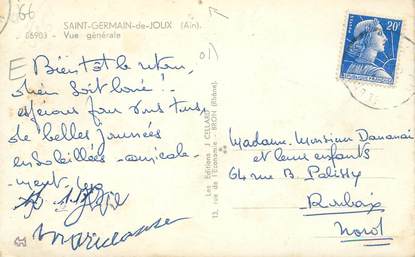 SAINT-GERMAIN-de-JOUX (Ain).
66903 - Vue générale
Bientôt le retour,
soit loué !
espérons pour vous tous,
de belles journées
ensoleillées - amicale-
ment,
Les Éditions J. CELLARD
13, rue de l'Economie - BRON (Rhône).
20F
Madame, Monsieur Dananai
et leurs enfants
64 rue B. Palissy
Roubaix
Nord